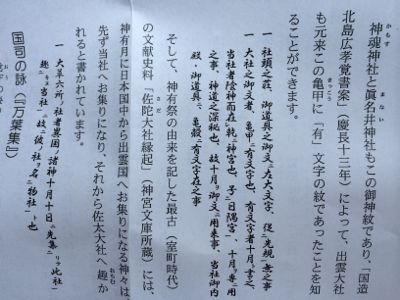 神魂神社と眞名井神社もこの御神紋であり、「国造
北島広孝覚書案」(慶長十三年)によって、出雲大社
も元来この亀甲に「有」文字の紋であったことを知
ることができます。
一 社頭之莊、御道具之御文、在大文字、従先規無之事
一 大社之御文者、亀甲ニ有文字也、有文字者十月ト書之、
当社者陰神而在乾ニ神宮也、号日隅宮、十月ヲ専用
之事、神道之深秘也、故十月ヲ御文ニ用来事、当社御内
殿、御道具ニ、亀殻ニ有文字在之事
そして、神有祭の由来を記した最古(室町時代)
の文献史料「佐陀大社縁起」(神宮文庫所蔵)には、
神有月に日本国中から出雲国へお集りになる神々は、
先ず当社へお集りになり、それから佐太大社へ趣か
れると書かれています。
一 大草六所ノ社者異国ノ諸神十月十日ニ先集リテ此社
趣キ当社 故ニ彼ノ社ヲ名惣社ト也
国司の詠(『万葉集』)